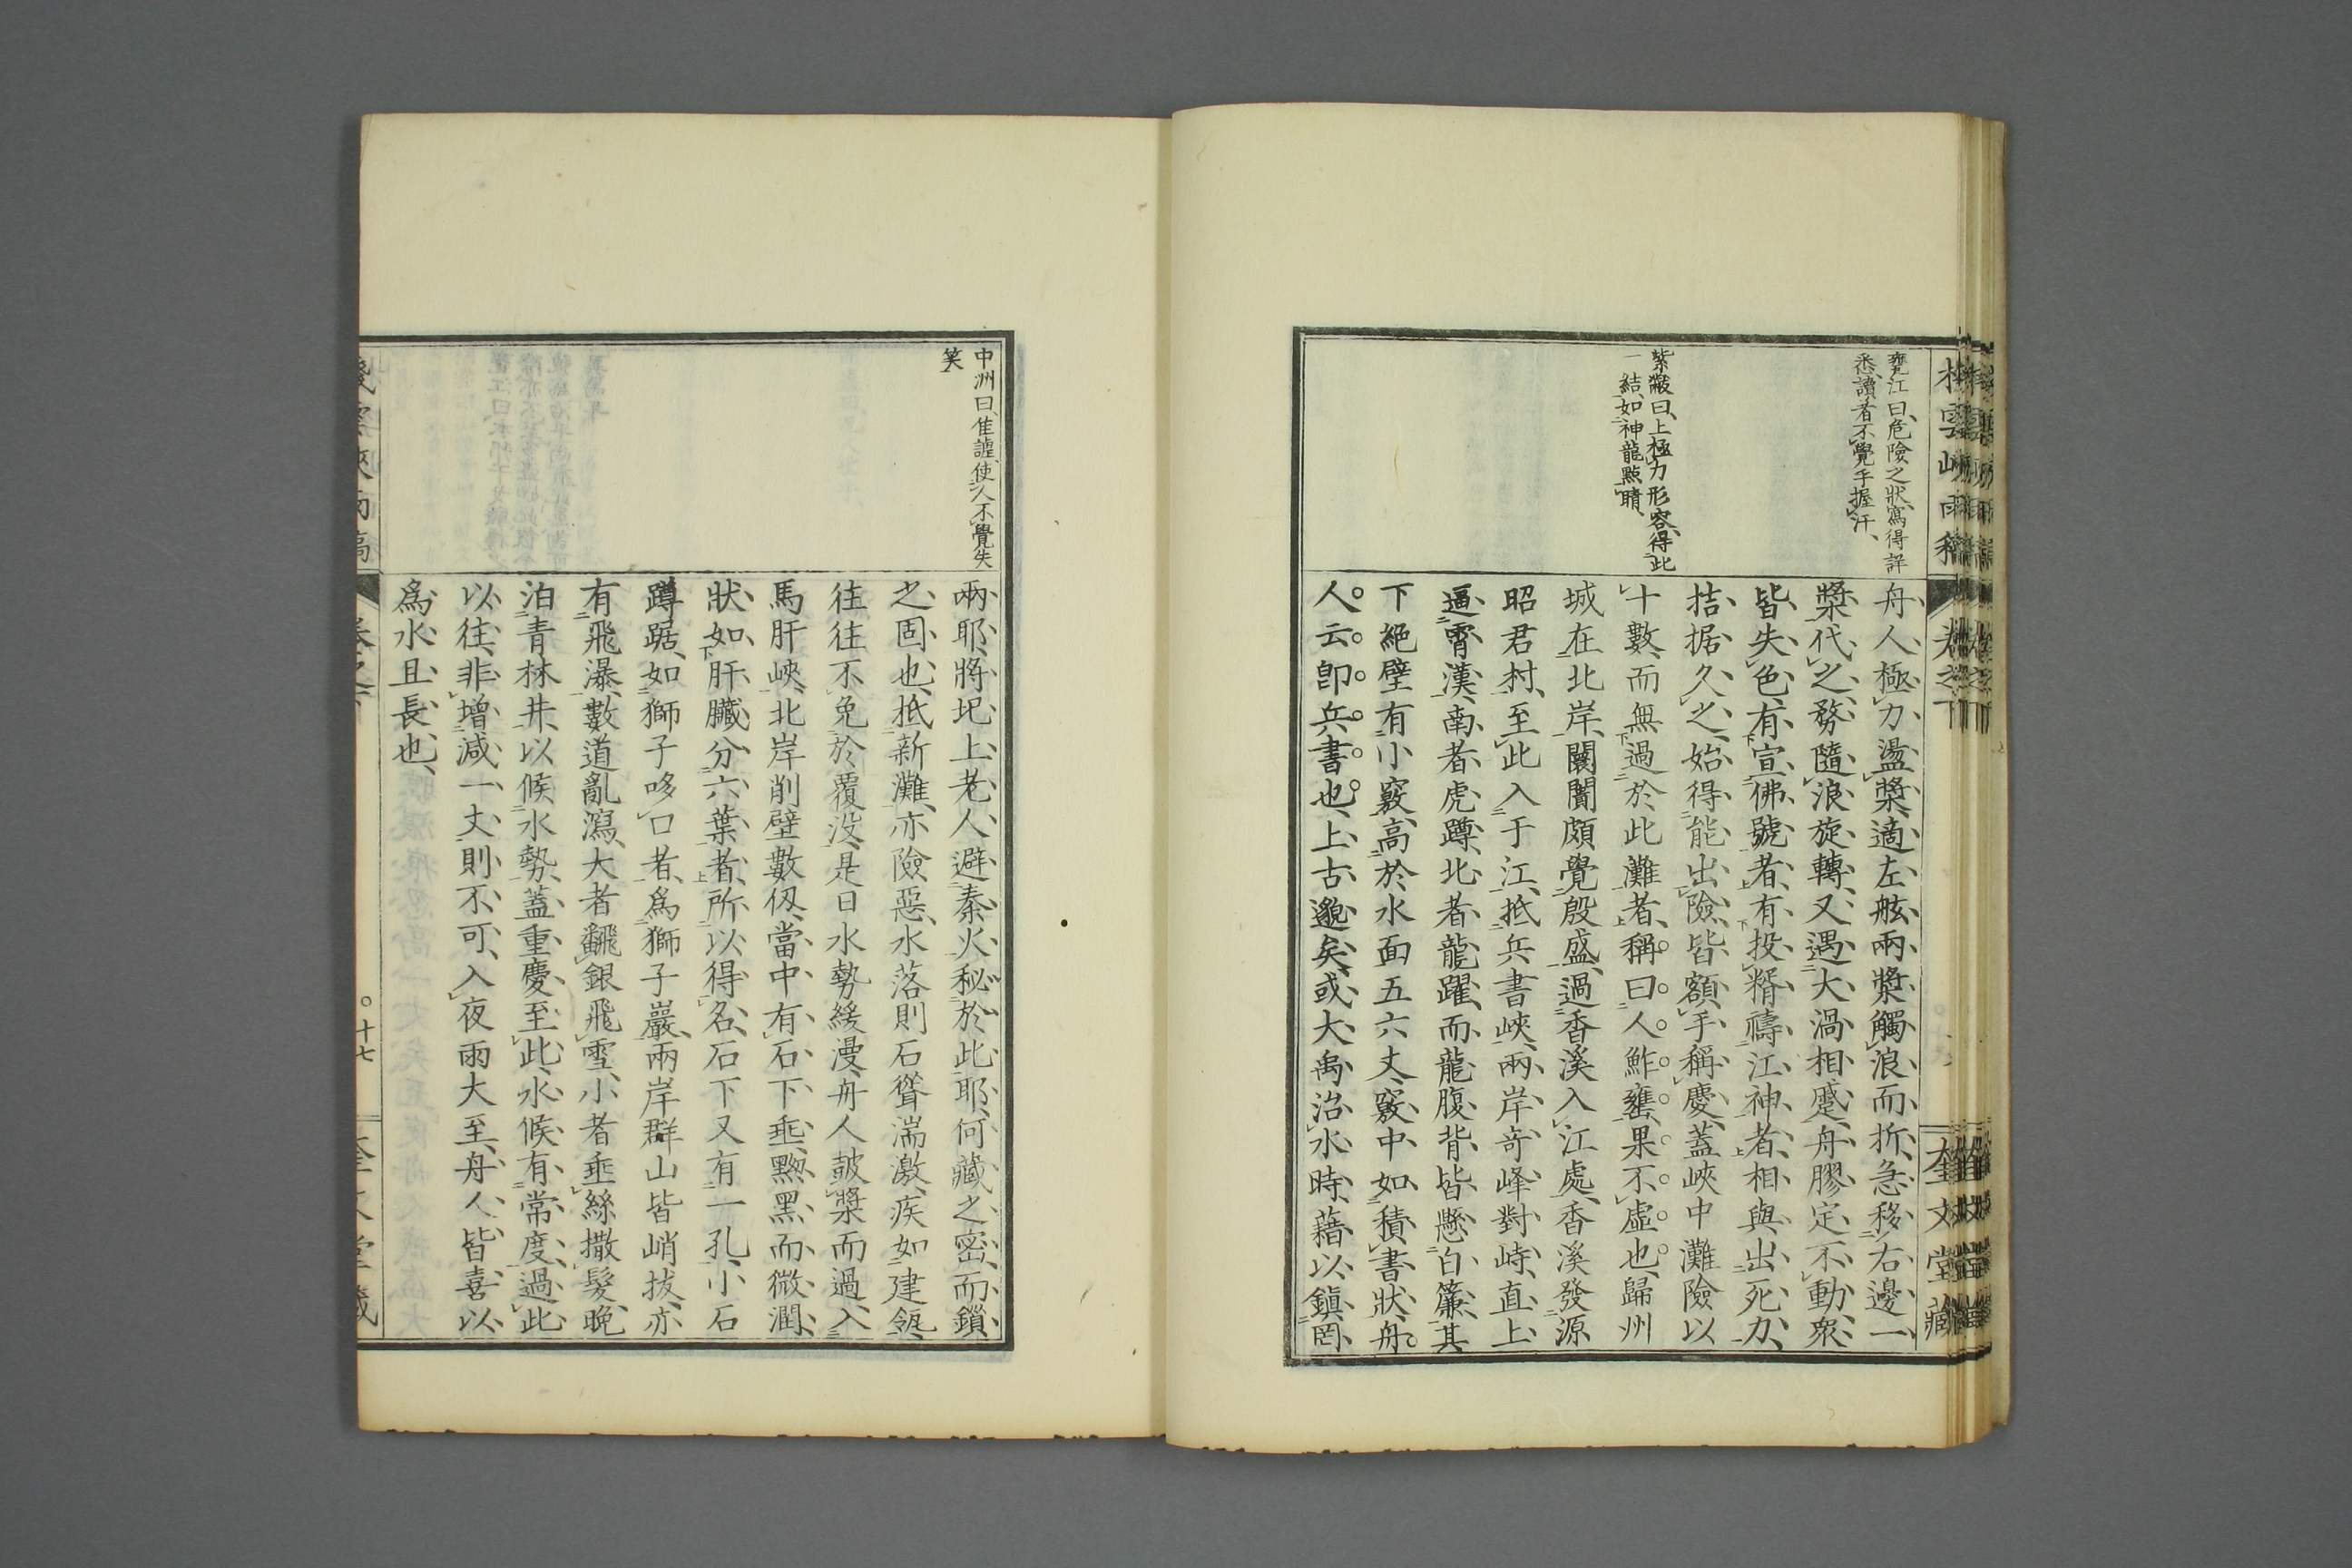 甕江曰、危險之狀、寫得詳
悉、讀者不覺手握汗、
紫巖曰、上極力形容、得此
一結、如神龍點睛、
舟人極力盪槳、適左舷兩槳觸浪而折、急移右邊一
槳代之、務隨浪旋轉、又遇大渦相蹙、舟膠定不動、衆
皆失色、有宣佛號者、有投糈禱江神者、相與出死力、
拮据久之、始得能出險、皆額手稱慶、蓋峽中灘險以
十數、而無過於此灘者、稱曰人鮓甕、果不虛也、歸州
城在北岸、闤闠頗覺殷盛、過香溪入江處、香溪發源
昭君村、至此入于江、抵兵書峽、兩岸奇峰對峙、直上
逼霄漢、南者虎蹲、北者龍躍、而龍腹背皆懸白簾、其
下絕壁有小竅、高於水面五六丈、竅中如積書狀、舟
人云、卽兵書也、上古邈矣、或大禹治水時、藉以鎭罔
桟雲峽雨稿
卷之下
奎文堂藏
中洲曰、隹謔、使人不覺失
笑
兩耶、將圯上老人避秦火、秘於此耶、何藏之密、而鎖
之固也、抵新灘、亦險惡、水落則石聳湍激、疾如建瓴、
往往不免於覆沒、是日水勢緩漫、舟人皷槳而過、入
馬肝峽、北岸削壁數仭、當中有石下垂、黝黑而微潤、
狀如肝臟分六葉者、所以得名、石下又有一孔、小石
蹲踞、如獅子哆口者、爲獅子巖、兩岸群山皆峭拔、亦
有飛瀑數道亂瀉、大者飜銀飛雪、小者垂絲撒髮、晚
泊青林井、以候水勢、蓋重慶至此、水候有常度、過此
以往、非增減一丈、則不可、入夜雨大至、舟人皆喜以
爲水且長也、
十七